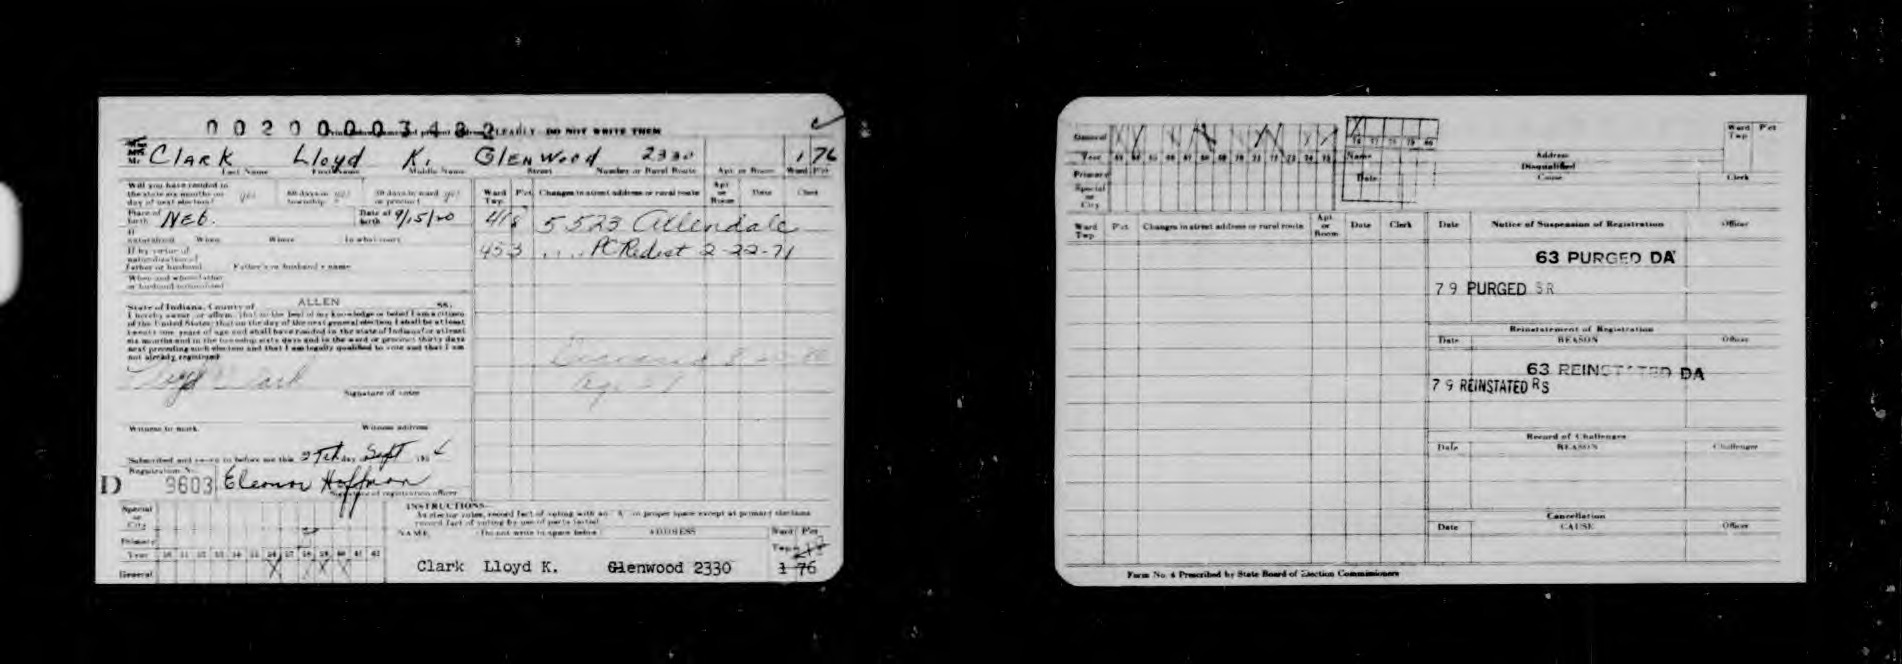 00200003482
CLEARLY - DO NOT WRITE THEM
Mr. Clark Lloyd K. Glenwood 2330 1 76
Last Name First Name Middle Name Street Number or Rural Route Apt. or Room Ward Pct.
Will you have resided in
the state six months on
day of next election? yes 60 days in township yes 30 days in ward or precinct yes
Ward Twp. Pct. Changes in street address or rural route Apt. or Room Date Clerk
Place of birth Neb. Date of birth 9/15/20
418 5523 Allendale
If naturalized When Where In what court
453 PC Redist 2-22-71
If by virtue of
naturalization of
father or husband Father's or husband's name
When and where father
or husband naturalized
State of Indiana, County of ALLEN SS.
I hereby swear (or affirm) that to the best of my knowledge or belief I am a citizen
of the United States; that on the day of the next general election I shall be at least
twenty one years of age and shall have resided in the state of Indiana for at least
six months and in the township sixty days and in the ward or precinct thirty days
next preceding such election and that I am legally qualified to vote and that I am
not already registered.
Deceased 8
Lloyd Clark
Signature of voter
Witness to mark Witness address
Subscribed and sworn to before me this 27th day Sept 195
Registration No.
D 3603 Eleanor Hoffman
Signature of registration officer
Special or City
Primary
Year 50 51 52 53 54 55 56 57 58 59 60 61 62
General X X X X
INSTRUCTIONS
As elector votes, record fact of voting with an "X" in proper space except at primary elections
record fact of voting by use of party initial.
NAME (Do not write in space below) ADDRESS Ward Twp. Pct.
Clark Lloyd K. Glenwood 2330 1 76
General
Year 63 64 65 66 67 68 69 70 71 72 73 74 75
76 77 78 79 80
Primary
Special or City
Name
Date
Address
Disqualified
Cause Clerk
Ward Twp Pct
Ward Twp Pct. Changes in street address or rural route Apt. or Room Date Clerk
Date Notice of Suspension of Registration Officer
63 PURGED DA
79 PURGED SR
Reinstatement of Registration
Date REASON Officer
63 REINSTATED DA
79 REINSTATED RS
Record of Challenges
Date REASON Challenger
Cancellation
Date CAUSE Officer
Form No. 4 Prescribed by State Board of Election Commissioners